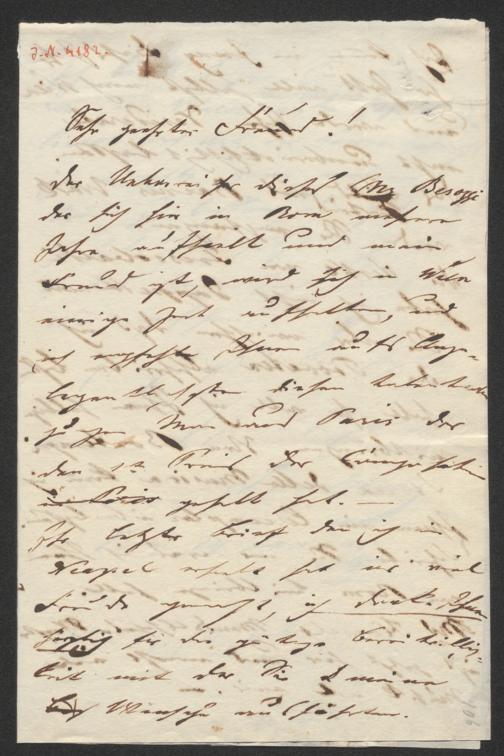 J. N. 4182.
Sehr geehrter Freund!
Der Ueberreicher dieses Besozzi
der sich hier in Rom mehrere
Jahre aufhielt und mein
Freund ist, wird sich in Wien
einige Zeit aufhalten, und
ich empfehle Ihnen aufs Ange-
legentlichste diesen talentvollen
jungen Mann aus Paris der
den 1t Preis der Composition
in Paris gehabt hat. —
Ihr letzter Brief den ich in
Neapel erhielt hat mir viel
Freude gemacht, ich danke Ihnen
herzlich für die gütige Bereitwillig-
keit mit der Sie meine
Wünsche ausführten.